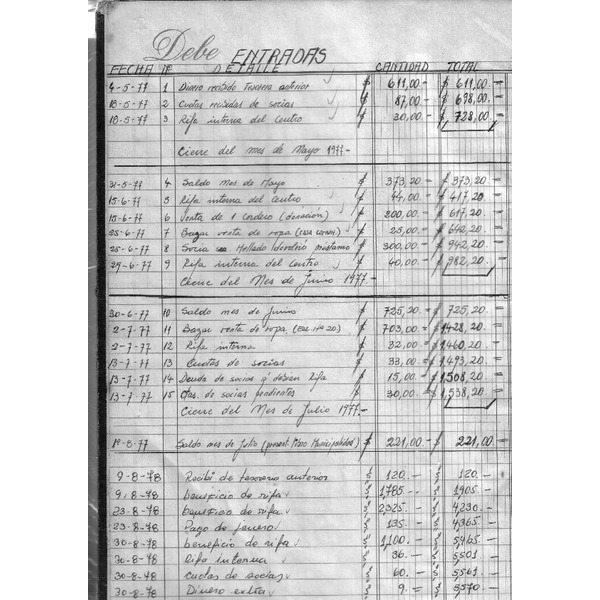 Debe ENTRADAS
FECHA Nº DETALLE CANTIDAD TOTAL
4-5-77 1 Dinero recibido Tesorera anterior $ 611,00.- $ 611,00.-
18-5-77 2 Cuotas recibidas de socias $ 87,00.- $ 698,00.-
18-5-77 3 Rifa interna del Centro $ 30,00.- $ 728,00.-
Cierre del mes de Mayo 1977.-
31-5-77 4 Saldo mes de Mayo $ 373,20.- $ 373,20.-
15-6-77 5 Rifa interna del Centro $ 44,00.- $ 417,20.-
15-6-77 6 Venta de 1 Cordero (donación) $ 200,00.- $ 617,20.-
25-6-77 7 Bazar venta de ropa $ 25,00.- $ 642,20.-
25-6-77 8 Socia préstamo $ 300,00.- $ 942,20.-
29-6-77 9 Rifa interna del Centro $ 40,00.- $ 982,20.-
Cierre del Mes de Junio 1977.-
30-6-77 10 Saldo mes de Junio $ 725,20.- $ 725,20.-
2-7-77 11 Bazar venta de ropa, $ 703,00.- $ 1428,20.-
2-7-77 12 Rifa interna $ 32,00.- $ 1,460,20.-
13-7-77 13 Cuotas de socias $ 33,00.- $ 1,493,20.-
13-7-77 14 Deuda de socias q' debían Rifa $ 15,00.- $ 1,508,20.-
13-7-77 15 Ctas. de socias pendientes $ 30,00.- $ 1,538,20.-
Cierre del Mes de Julio 1977.-
1º-8-77 Saldo mes de Julio (present. Municipalidad) $ 221,00.- $ 221,00.-
9-8-78 Recibí de tesorera anterior $ 120.- $ 120.-
9-8-78 beneficio de rifa $ 1,785.- $ 1,905.-
23-8-78 beneficio de rifa $ 2325.- $ 4,230.-
23-8-78 Pago de $ 135.- $ 4,365.-
30-8-78 beneficio de rifa $ 1,100.- $ 5,465.-
30-8-78 Rifa interna $ 36.- $ 5,501.-
30-8-78 Cuotas de socias $ 60.- $ 5,561.-
30-8-78 Dinero extra $ 9.- $ 5,570.-